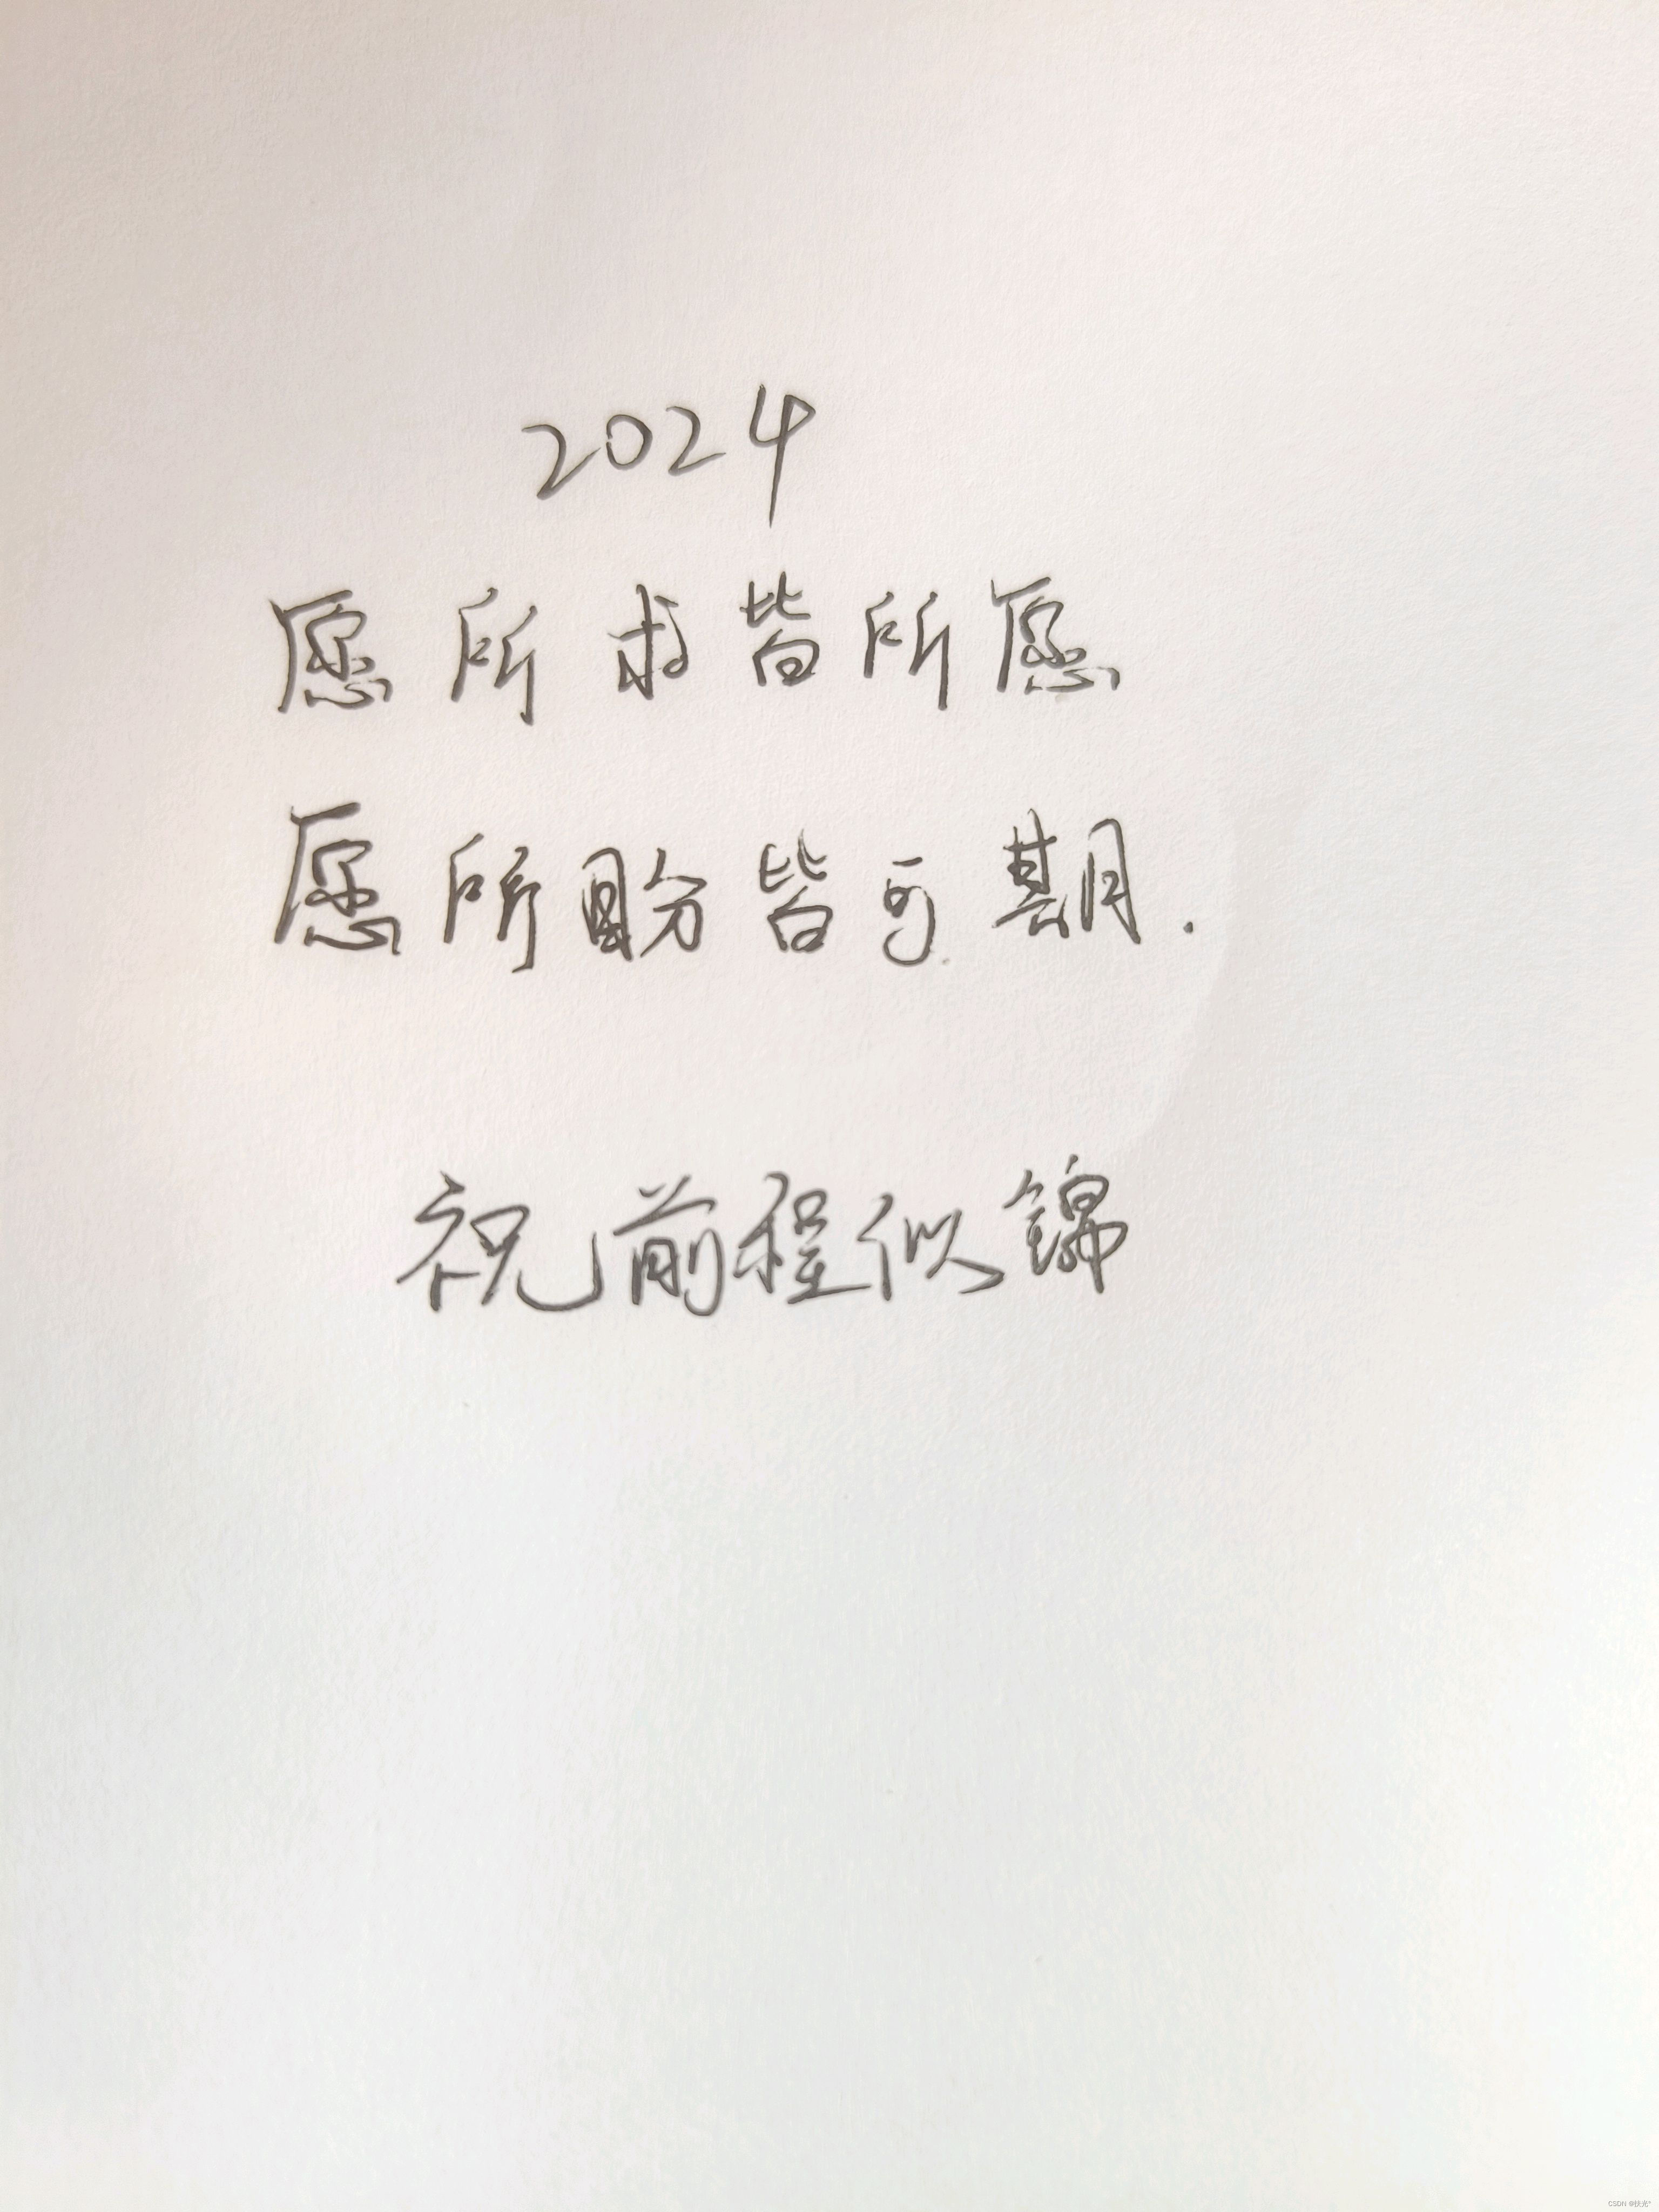 2024
愿所求皆所愿
愿所盼皆可期.
祝前程似锦
CSDN @扶光*